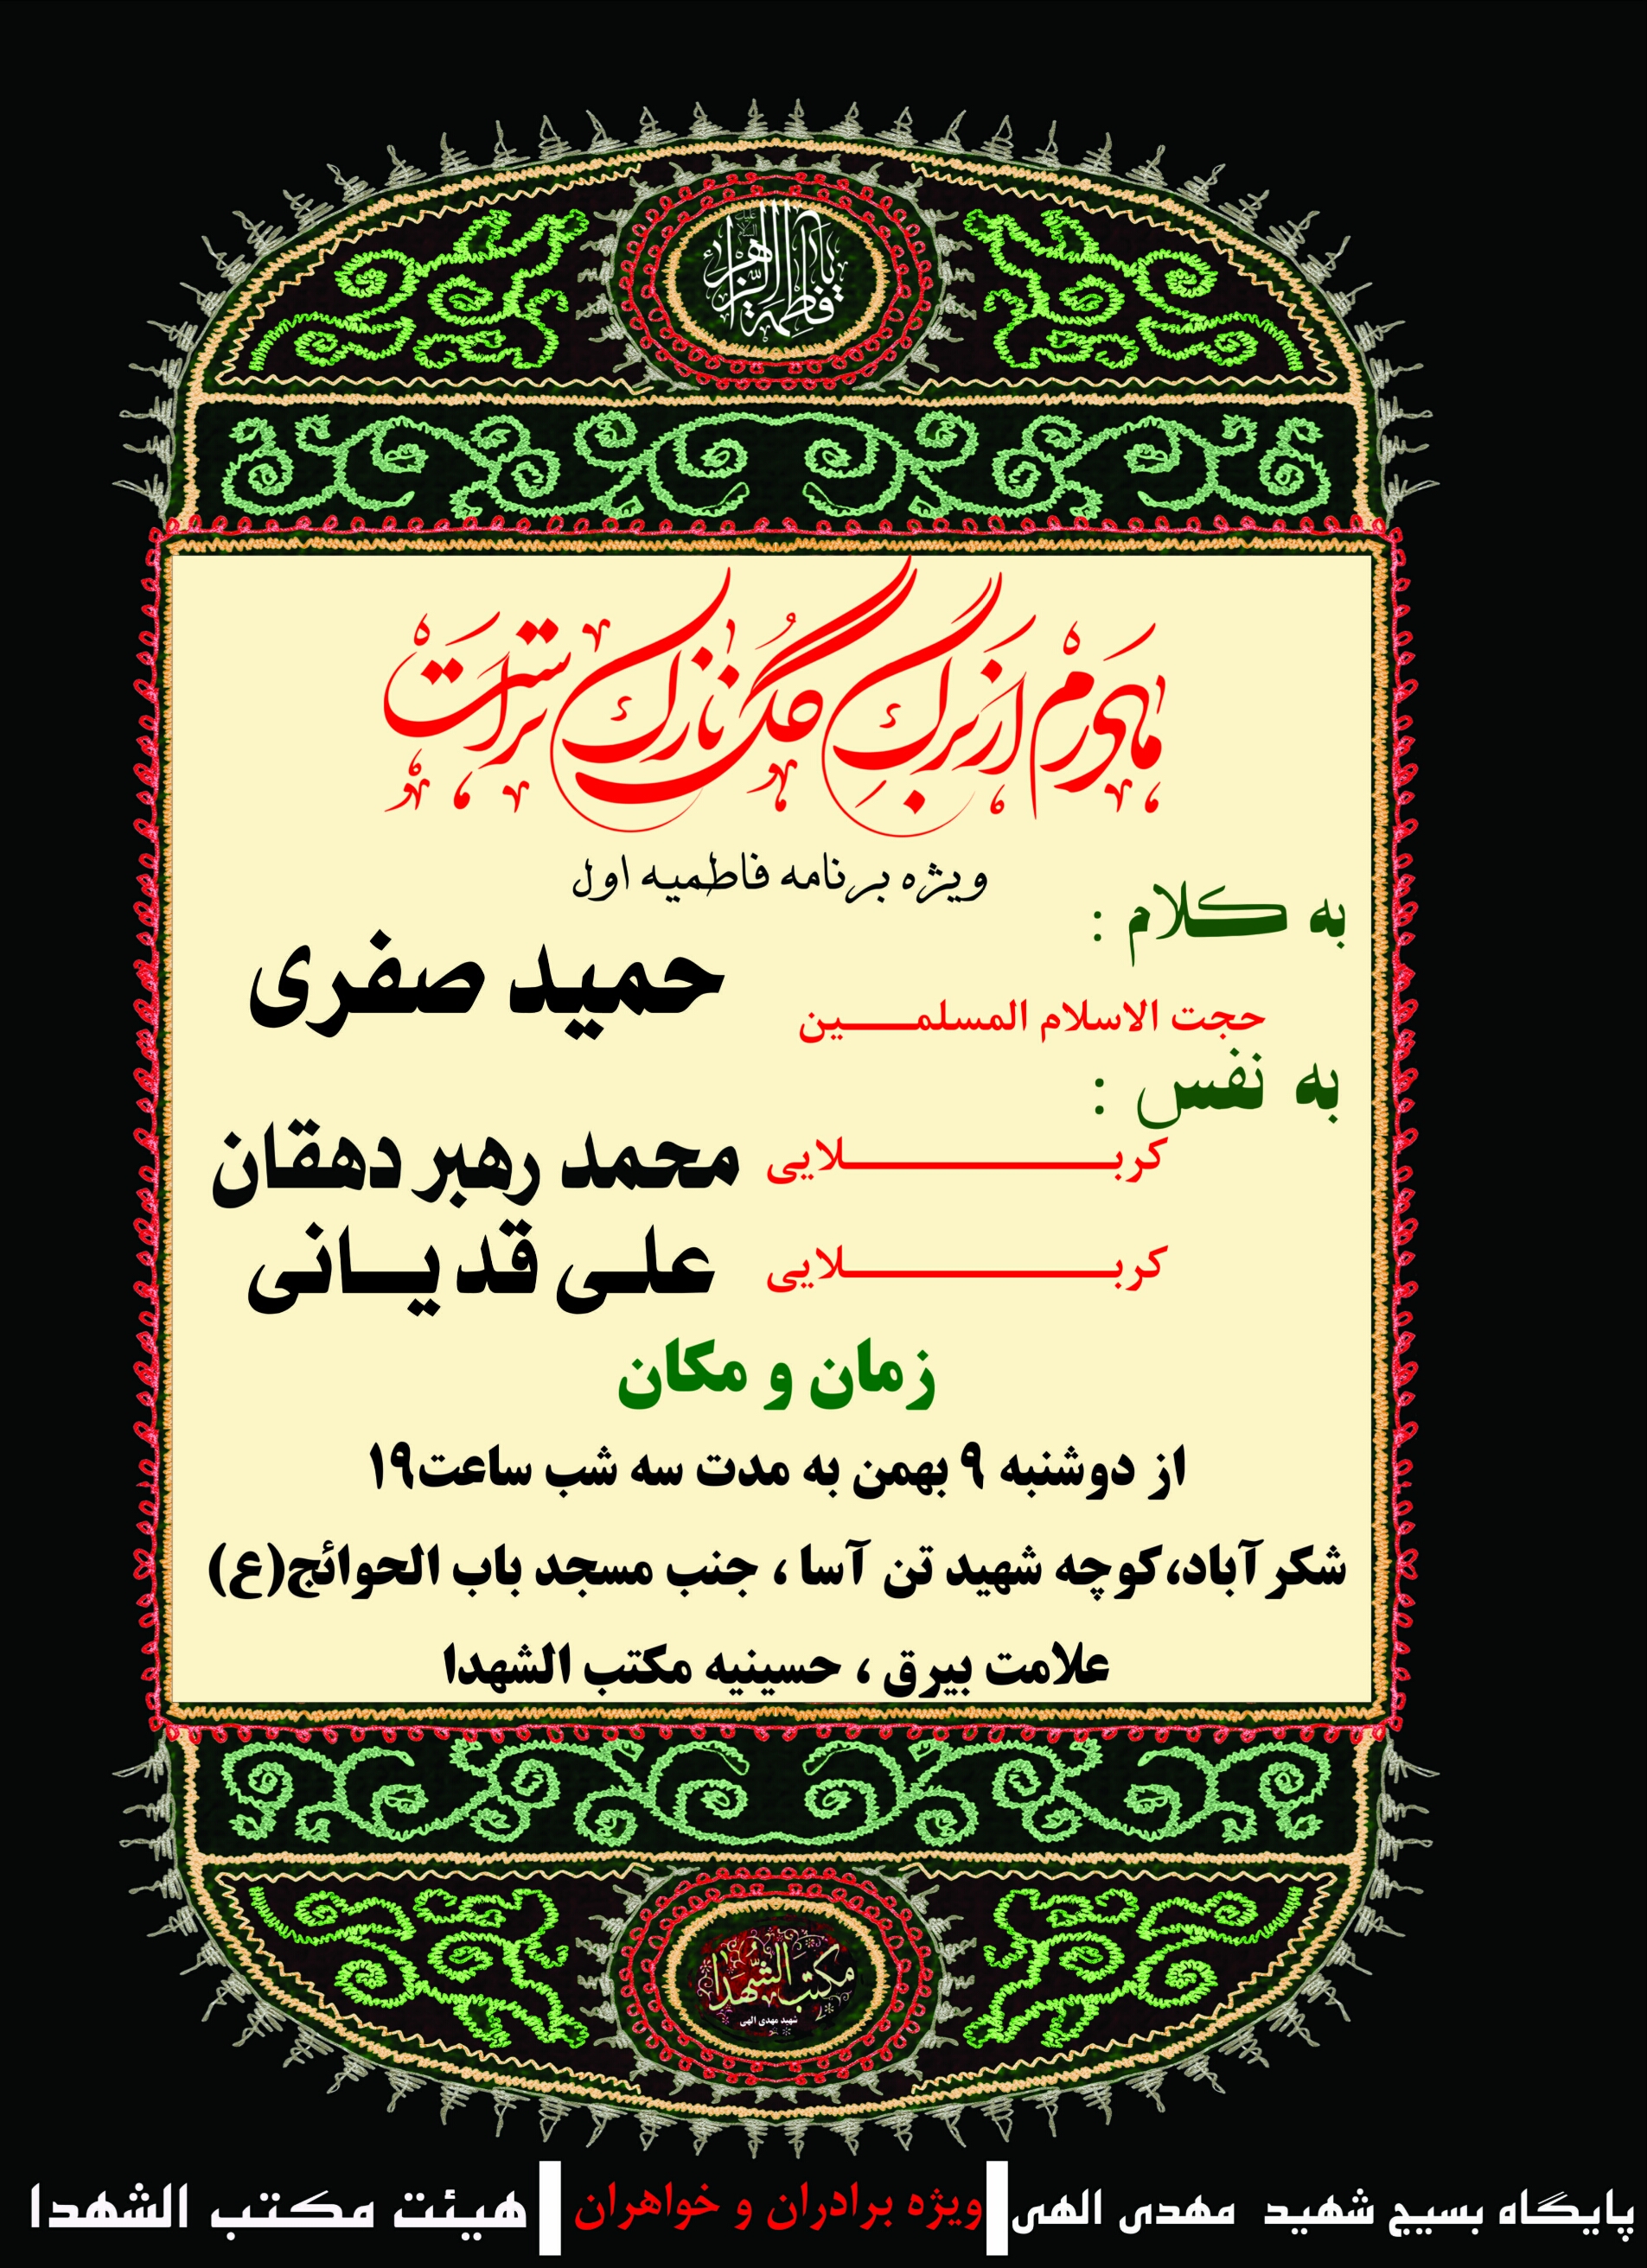 یا فاطمة الزهراء
علیها السلام
مادرم از برگ گل نازک تر است
ویژه برنامه فاطمیه اول
به کلام :
حجت الاسلام المسلمین حمید صفری
به نفس :
کربلایی محمد رهبر دهقان
کربلایی علی قدیانی
زمان و مکان
از دوشنبه ۹ بهمن به مدت سه شب ساعت۱۹
شکر آباد،کوچه شهید تن آسا ، جنب مسجد باب الحوائج(ع)
علامت بیرق ، حسینیه مکتب الشهدا
مکتب الشُّهَدا
شهید مهدی الهی
پایگاه بسیج شهید مهدی الهی ویژه برادران و خواهران هیئت مکتب الشهدا